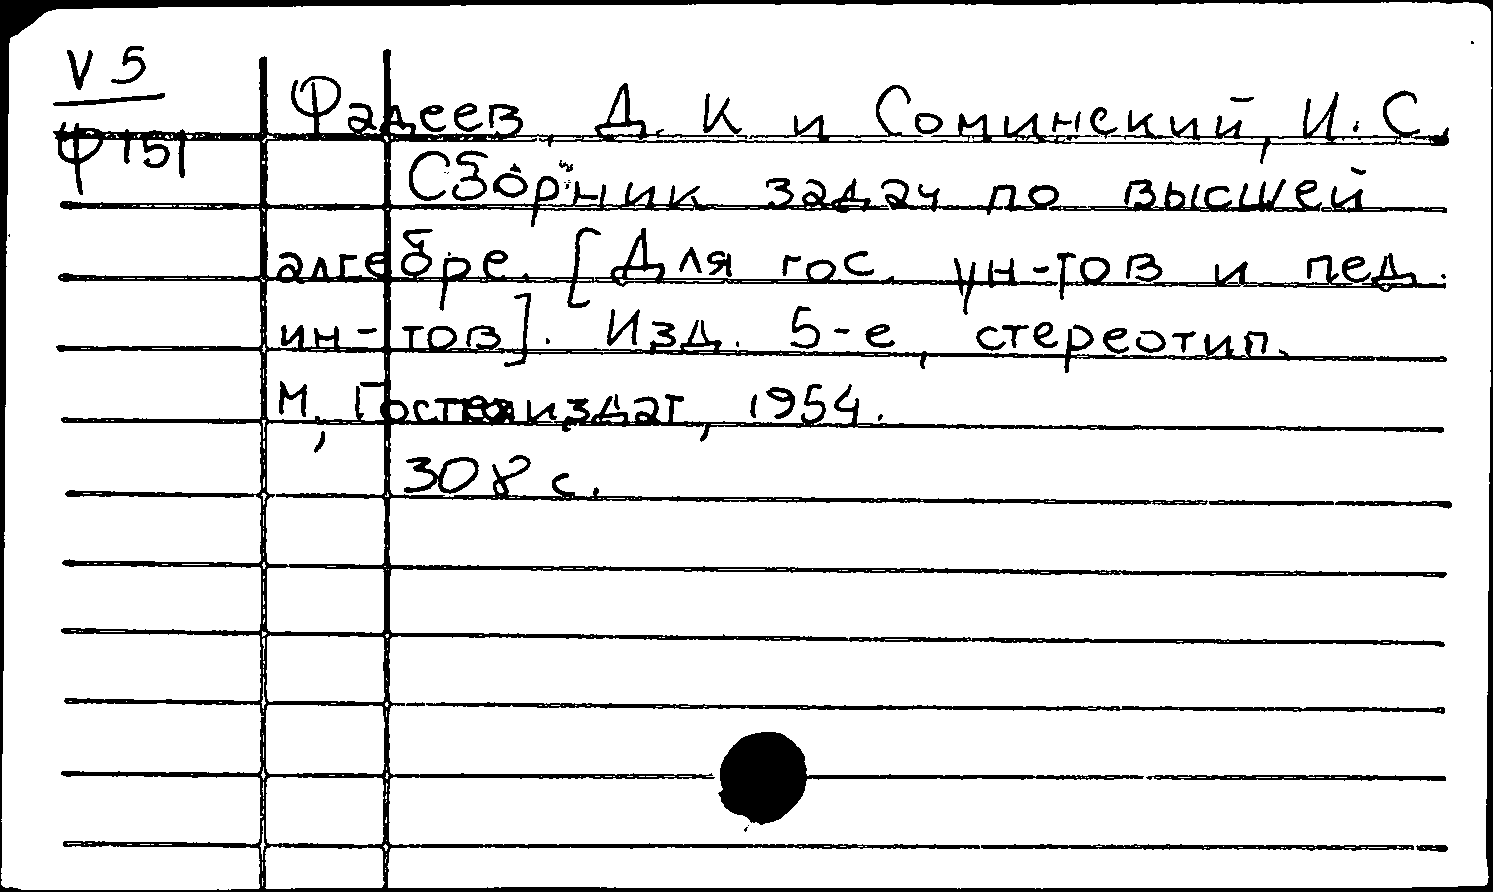 V 5
Ф 151
Фадеев, Д. К и Соминский, И. С.
Сборник задач по высшей
алгебре. [Для гос. ун-тов и пед.
ин-тов]. Изд. 5-е, стереотип.
М., Гостехиздат, 1954.
308 с.